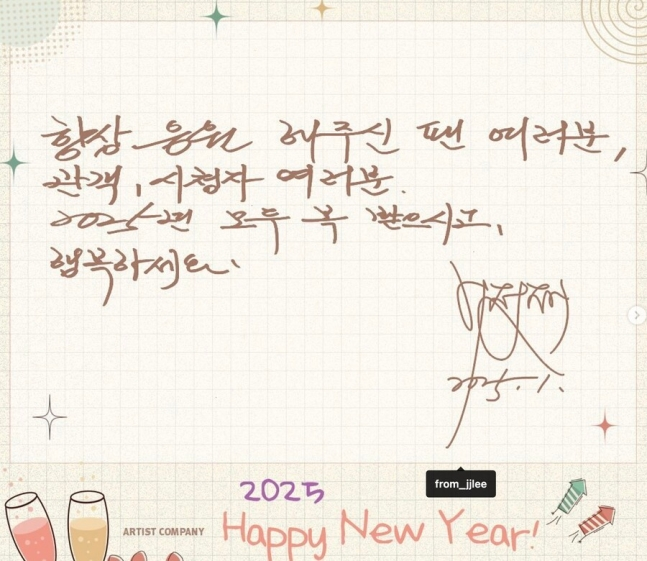 항상 응원 해주신 팬 여러분,
관객, 시청자 여러분.
2025년 모두 복 받으시고,
행복하세요.
2025. 1.
from_jjlee
2025
ARTIST COMPANY
Happy New Year!